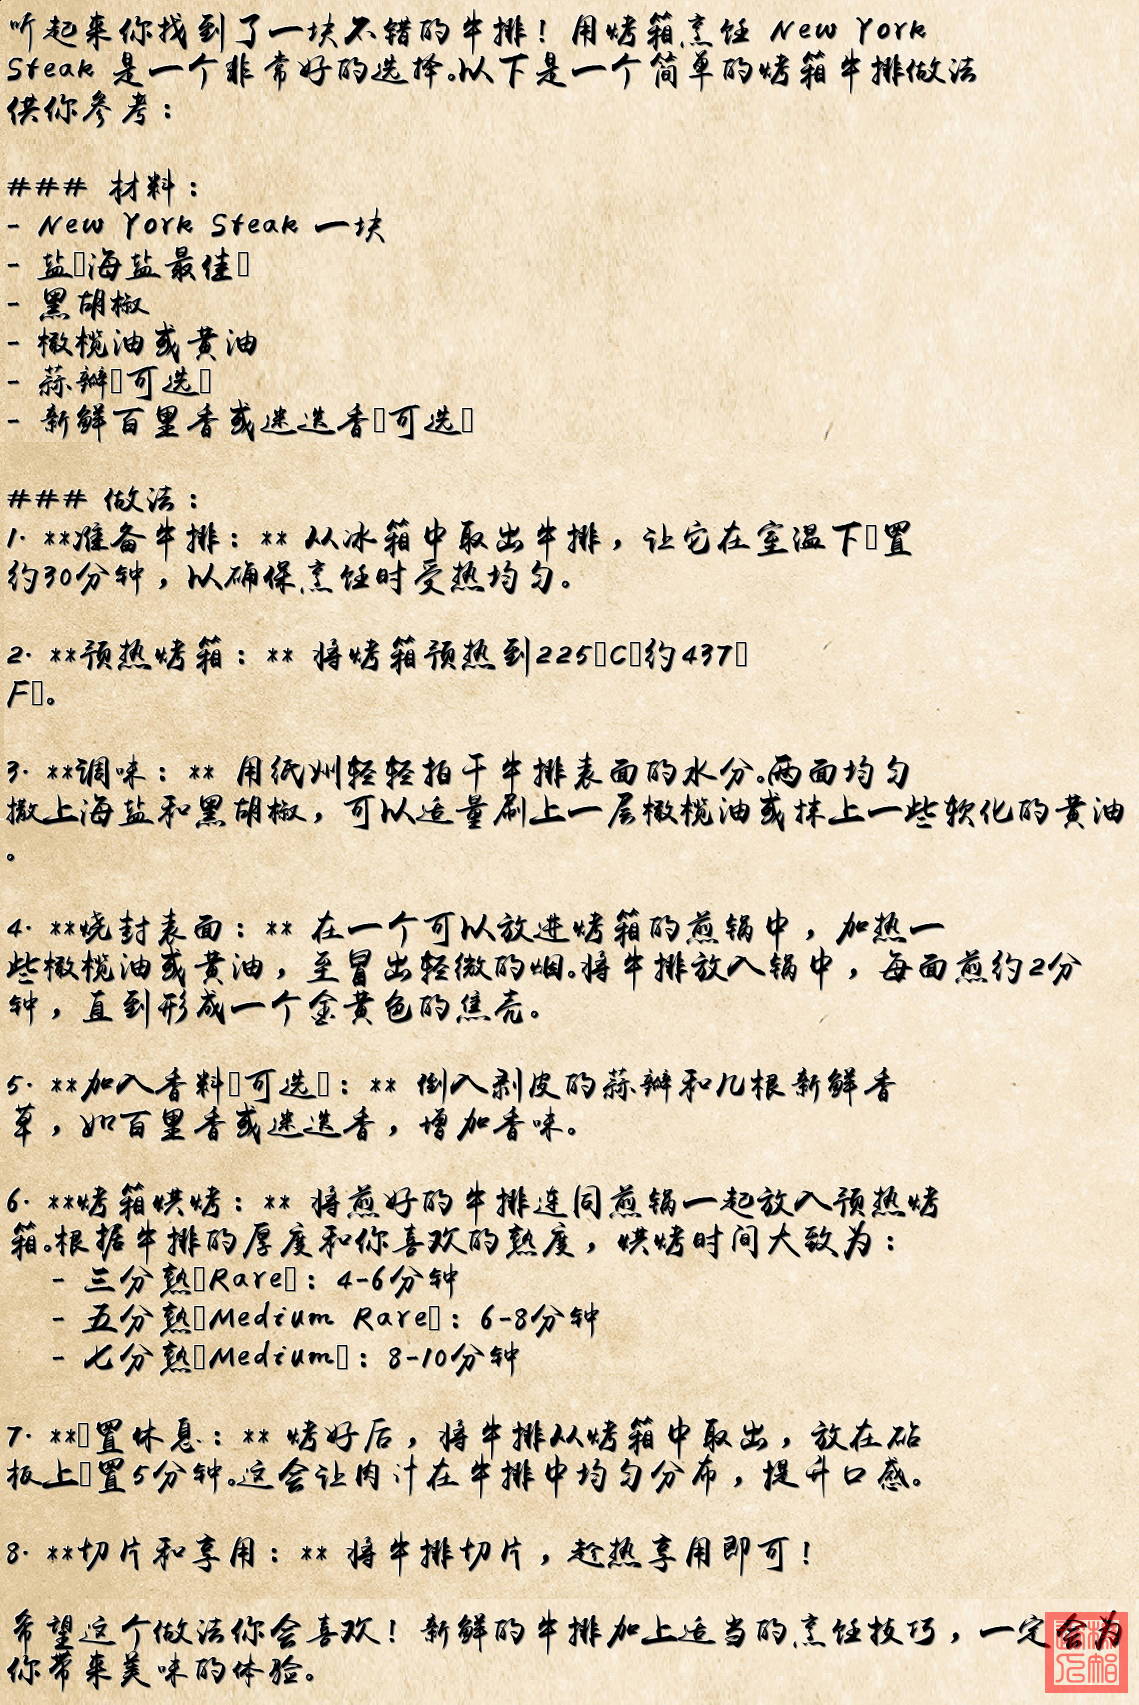 听起来你找到了一块不错的牛排！用烤箱烹饪 New York
Steak 是一个非常好的选择。以下是一个简单的烤箱牛排做法
供你参考：
### 材料：
- New York Steak 一块
- 盐▯海盐最佳▯
- 黑胡椒
- 橄榄油或黄油
- 蒜瓣▯可选▯
- 新鲜百里香或迷迭香▯可选▯
### 做法：
1. **准备牛排：** 从冰箱中取出牛排，让它在室温下▯置
约30分钟，以确保烹饪时受热均匀。
2. **预热烤箱：** 将烤箱预热到225▯C▯约437▯
F▯。
3. **调味：** 用纸巾轻轻拍干牛排表面的水分。两面均匀
撒上海盐和黑胡椒，可以适量刷上一层橄榄油或抹上一些软化的黄油
。
4. **烧封表面：** 在一个可以放进烤箱的煎锅中，加热一
些橄榄油或黄油，至冒出轻微的烟。将牛排放入锅中，每面煎约2分
钟，直到形成一个金黄色的焦壳。
5. **加入香料▯可选▯：** 倒入剥皮的蒜瓣和几根新鲜香
草，如百里香或迷迭香，增加香味。
6. **烤箱烘烤：** 将煎好的牛排连同煎锅一起放入预热烤
箱。根据牛排的厚度和你喜欢的熟度，烘烤时间大致为：
- 三分熟▯Rare▯：4-6分钟
- 五分熟▯Medium Rare▯：6-8分钟
- 七分熟▯Medium▯：8-10分钟
7. **▯置休息：** 烤好后，将牛排从烤箱中取出，放在砧
板上▯置5分钟。这会让肉汁在牛排中均匀分布，提升口感。
8. **切片和享用：** 将牛排切片，趁热享用即可！
希望这个做法你会喜欢！新鲜的牛排加上适当的烹饪技巧，一定会为
你带来美味的体验。